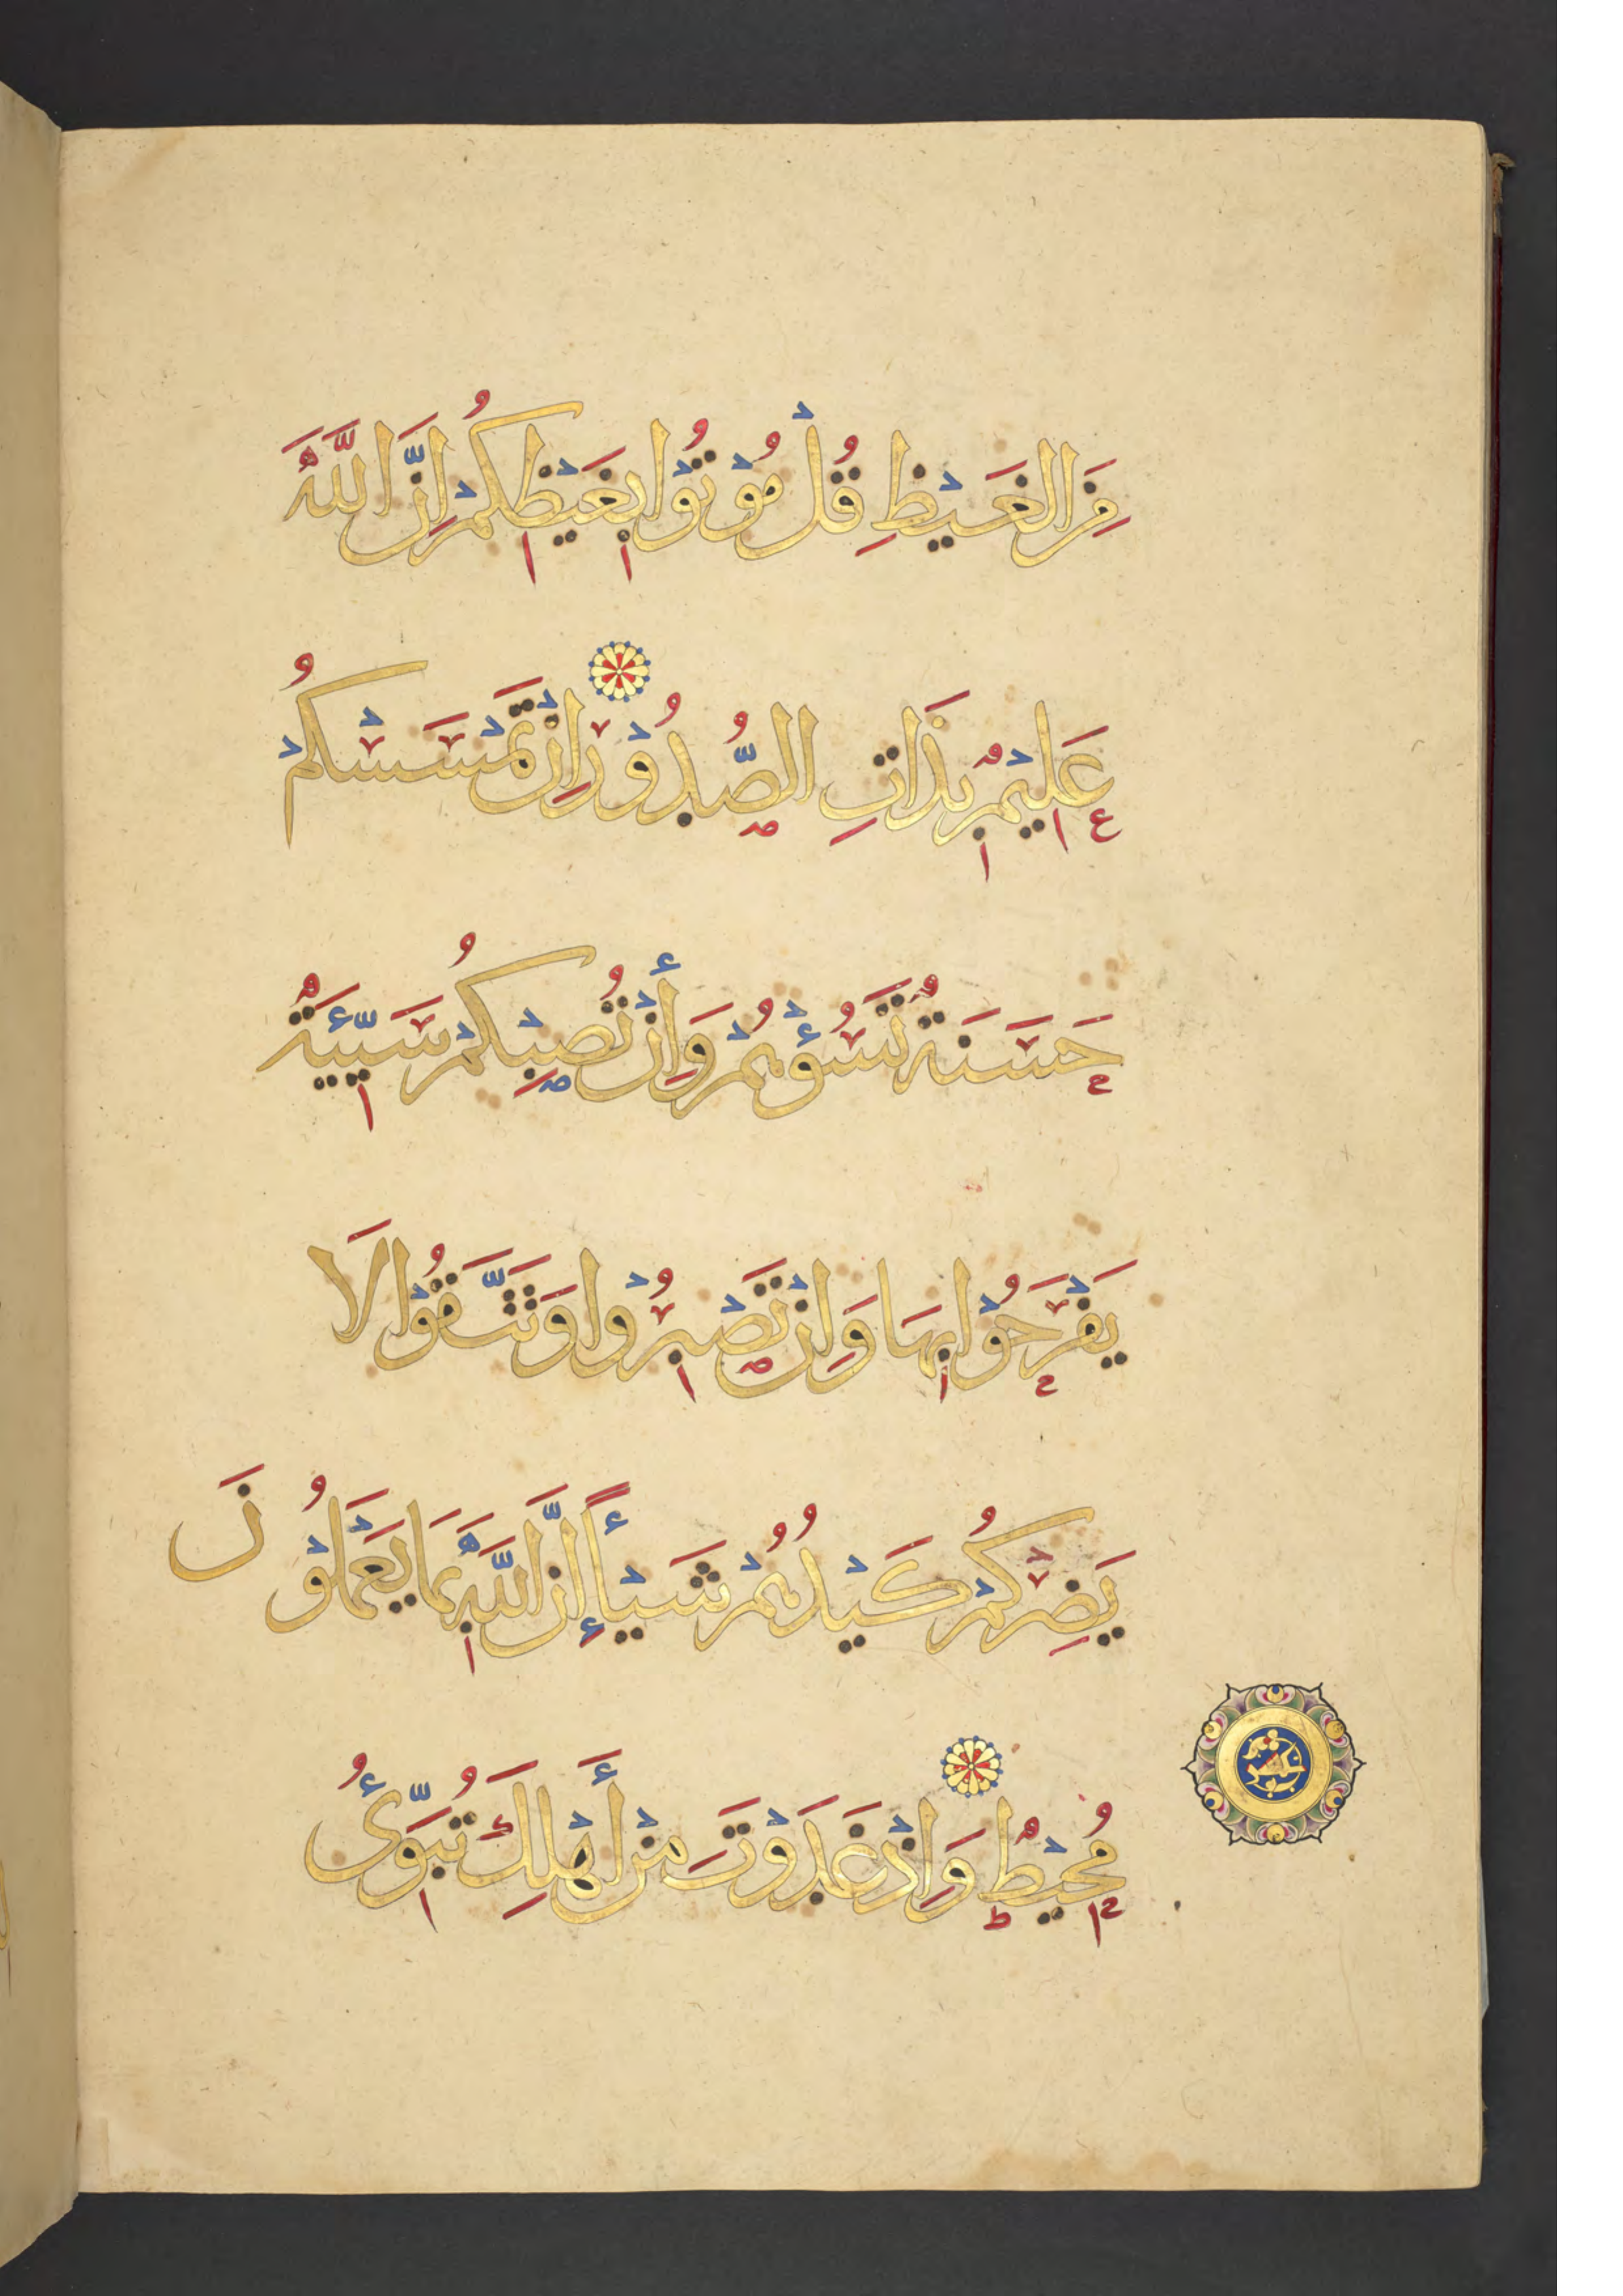 مِنَ الْغَيْظِ قُلْ مُوْتُوْا بِغَيْظِكُمْ اِنَّ اللَّهَ
عَلِيْمٌ بِذَاتِ الصُّدُوْرِ اِنْ تَمْسَسْكُمْ
حَسَنَةٌ تَسُؤْهُمْ وَإِنْ تُصِبْكُمْ سَيِّئَةٌ
يَفْرَحُوْا بِهَا وَاِنْ تَصْبِرُوْا وَتَتَّقُوْا لَا
يَضِرْكُمْ كَيْدُهُمْ شَيْـًٔا إِنَّ اللَّهَ بِمَا يَعْمَلُوْنَ
مُحِيْطٌ وَاِذْ غَدَوْتَ مِنْ أَهْلِكَ تُبَوِّئُ